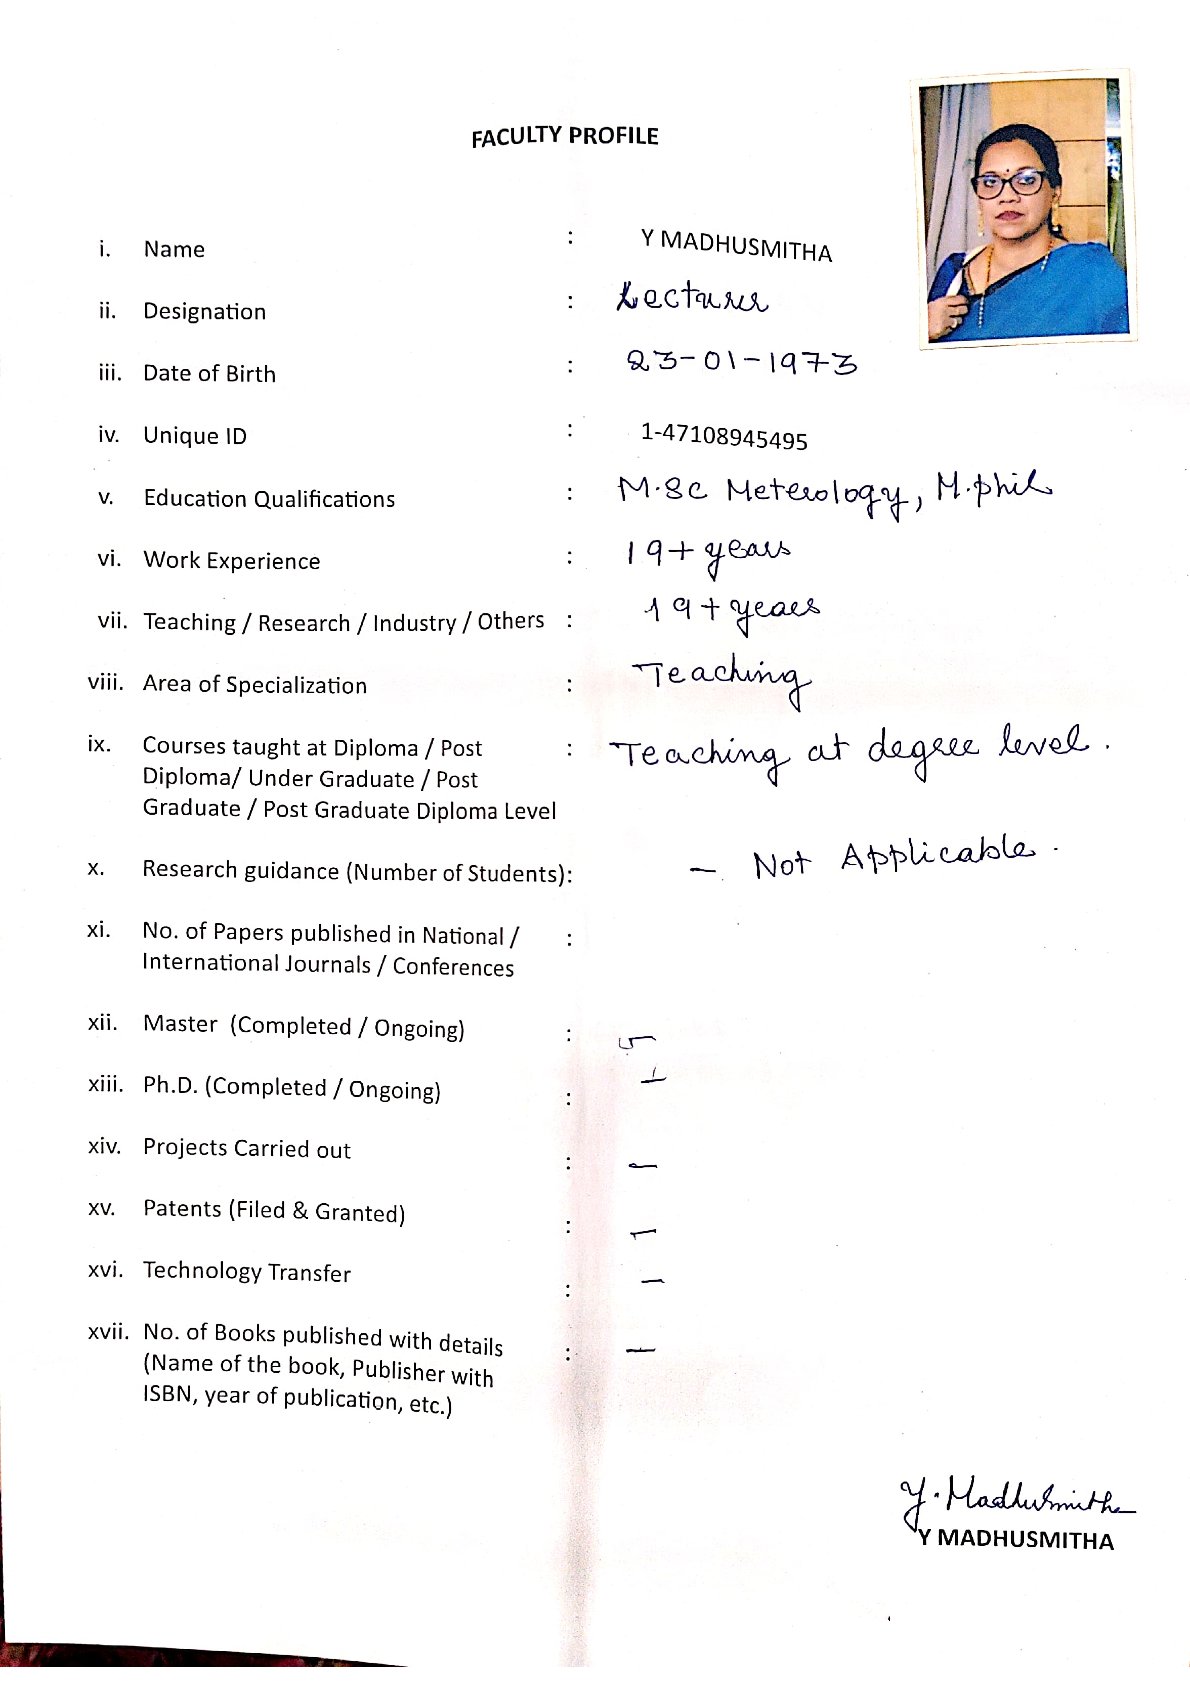 FACULTY PROFILE
i. Name : Y MADHUSMITHA
ii. Designation : Lecturer
iii. Date of Birth : 23-01-1973
iv. Unique ID : 1-47108945495
v. Education Qualifications : M.Sc Meterology, M.phil
vi. Work Experience : 19+ years
vii. Teaching / Research / Industry / Others : 19+ years
viii. Area of Specialization : Teaching
ix. Courses taught at Diploma / Post : Teaching at degree level.
Diploma/ Under Graduate / Post
Graduate / Post Graduate Diploma Level
x. Research guidance (Number of Students): – Not Applicable.
xi. No. of Papers published in National / :
International Journals / Conferences
xii. Master (Completed / Ongoing) :
xiii. Ph.D. (Completed / Ongoing) :
xiv. Projects Carried out : –
xv. Patents (Filed & Granted) : –
xvi. Technology Transfer : –
xvii. No. of Books published with details : –
(Name of the book, Publisher with
ISBN, year of publication, etc.)
Y. Madhusmitha
Y MADHUSMITHA